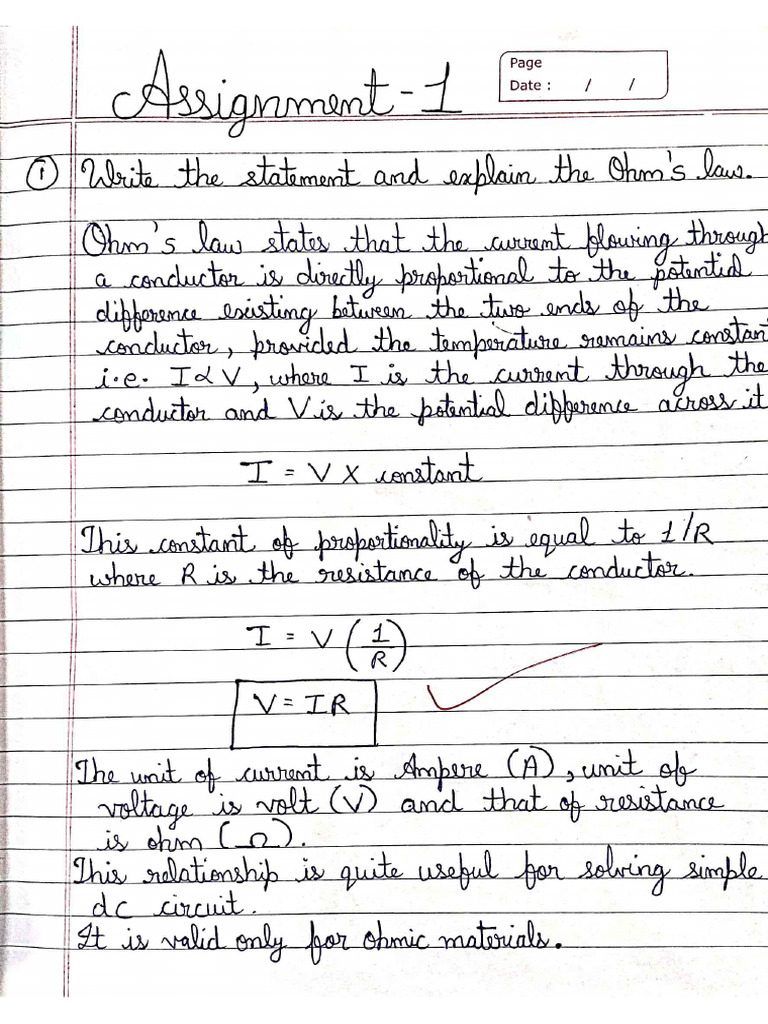 Page
Assignment-1
Date : / /
① Write the statement and explain the Ohm's law.
Ohm's law states that the current flowing through
a conductor is directly proportional to the potential
difference existing between the two ends of the
conductor, provided the temperature remains constant
i.e. I ∝ V, where I is the current through the
conductor and V is the potential difference across it
I = V X constant
This constant of proportionality is equal to 1/R
where R is the resistance of the conductor.
I = V (1/R)
V = IR
The unit of current is Ampere (A), unit of
voltage is volt (V) and that of resistance
is ohm (Ω).
This relationship is quite useful for solving simple
dc circuit.
It is valid only for ohmic materials.